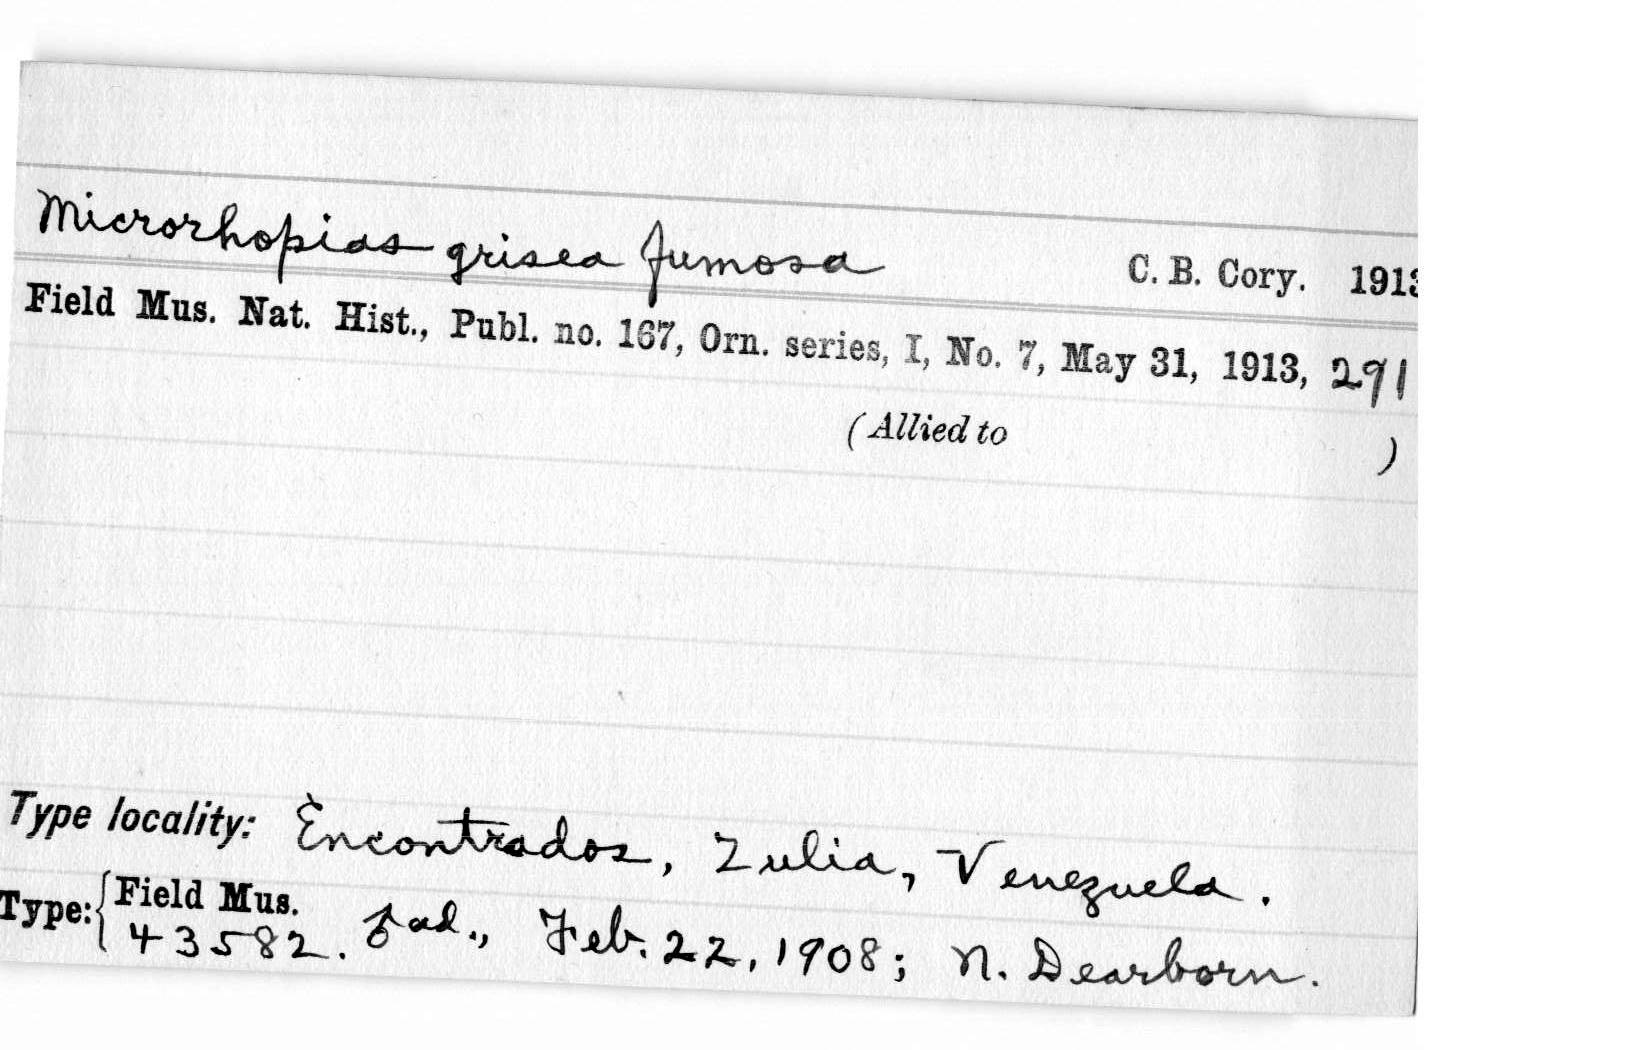 Microrhopias grisea fumosa C. B. Cory. 1913
Field Mus. Nat. Hist., Publ. no. 167, Orn. series, I, No. 7, May 31, 1913, 291
(Allied to )
Type locality: Encontrados, Zulia, Venezuela.
Type: { Field Mus.
43582. ♂ ad., Feb. 22, 1908; N. Dearborn.